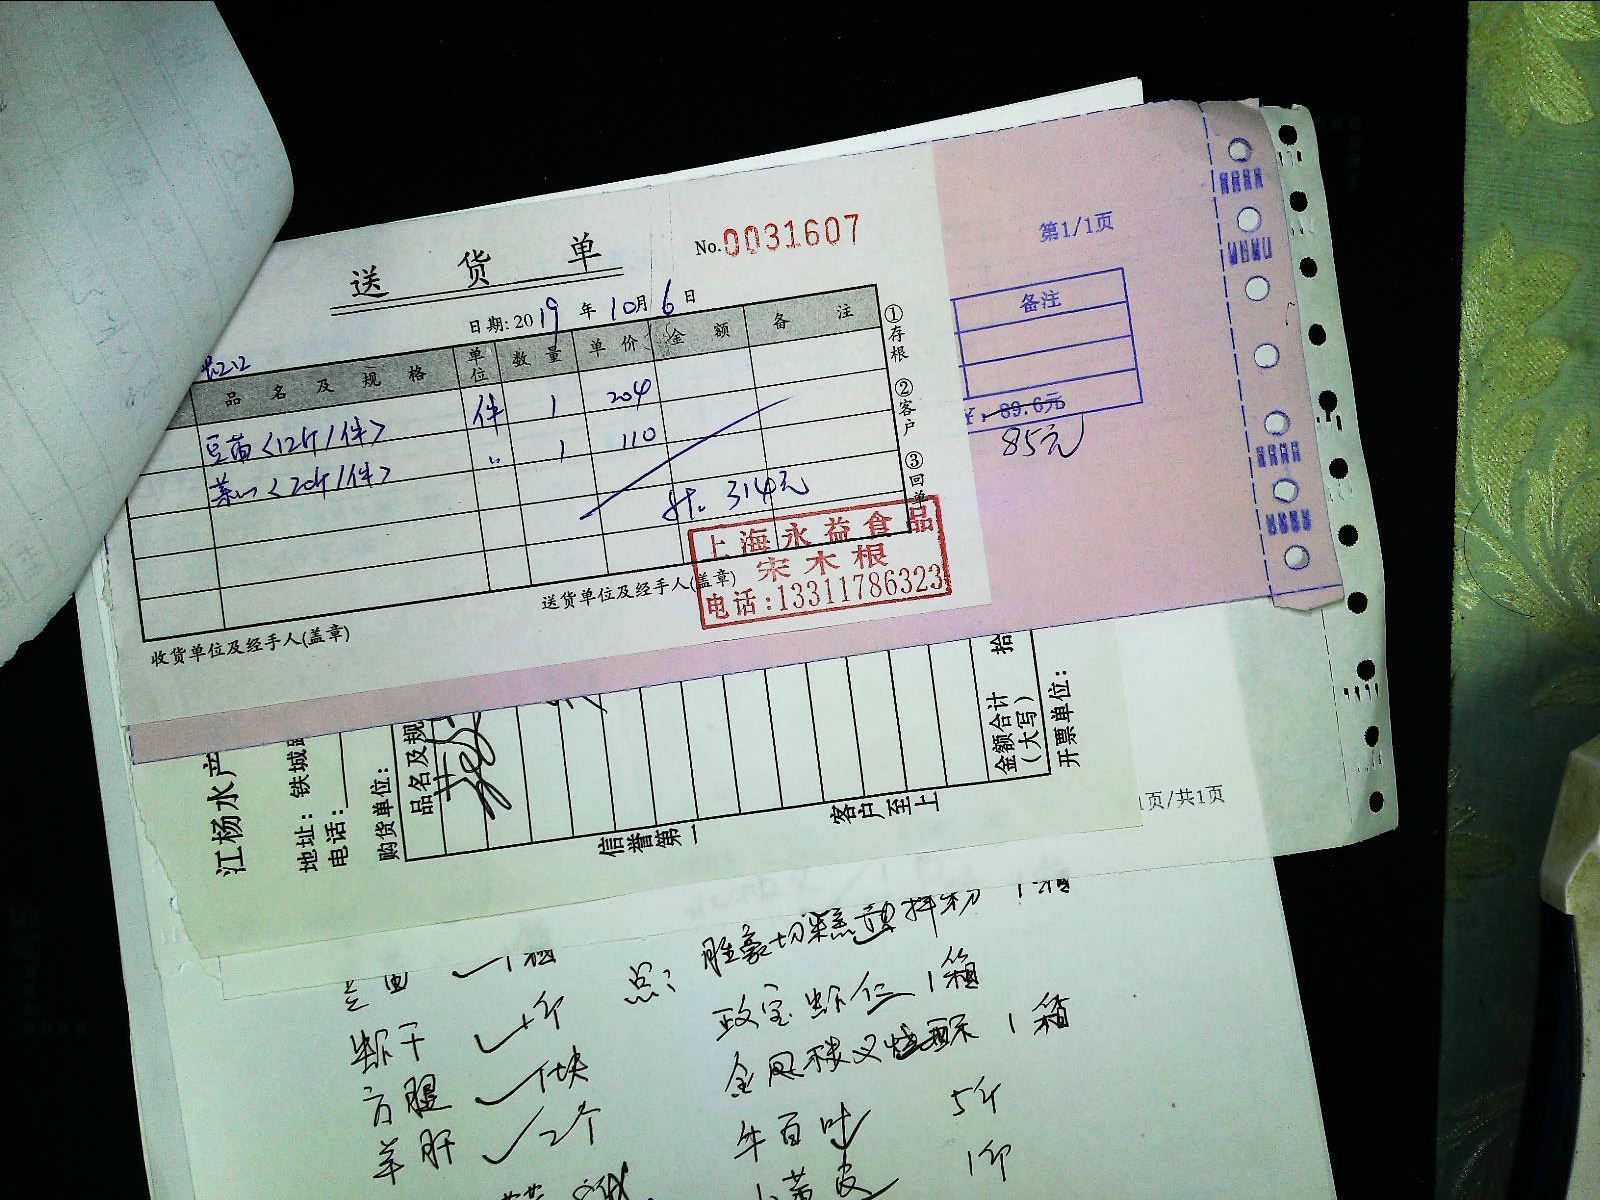 送货单
No.0031607
日期:2019年10月6日
品名及规格 单位 数量 单价 金额 备注
豆苗<12斤/件> 件 1 204
<20斤/件> 〃 1 110
计: 314元
①存根 ②客户 ③回单
上海永益食品
宋木根
电话:13311786323
送货单位及经手人(盖章)
收货单位及经手人(盖章)
第1/1页
备注
¥:89.6元
85元
江杨水产
地址:铁城路
电话:
购货单位:
品名及规
信誉第一
客户至上
拾
金额合计
(大写)
开票单位:
1页/共1页
1箱
虾干 1斤
方腿 1块
羊肝 2个
点:
1箱
政宝虾仁 1箱
金凤楼叉烧酥 1箱
牛百叶 5斤
皮